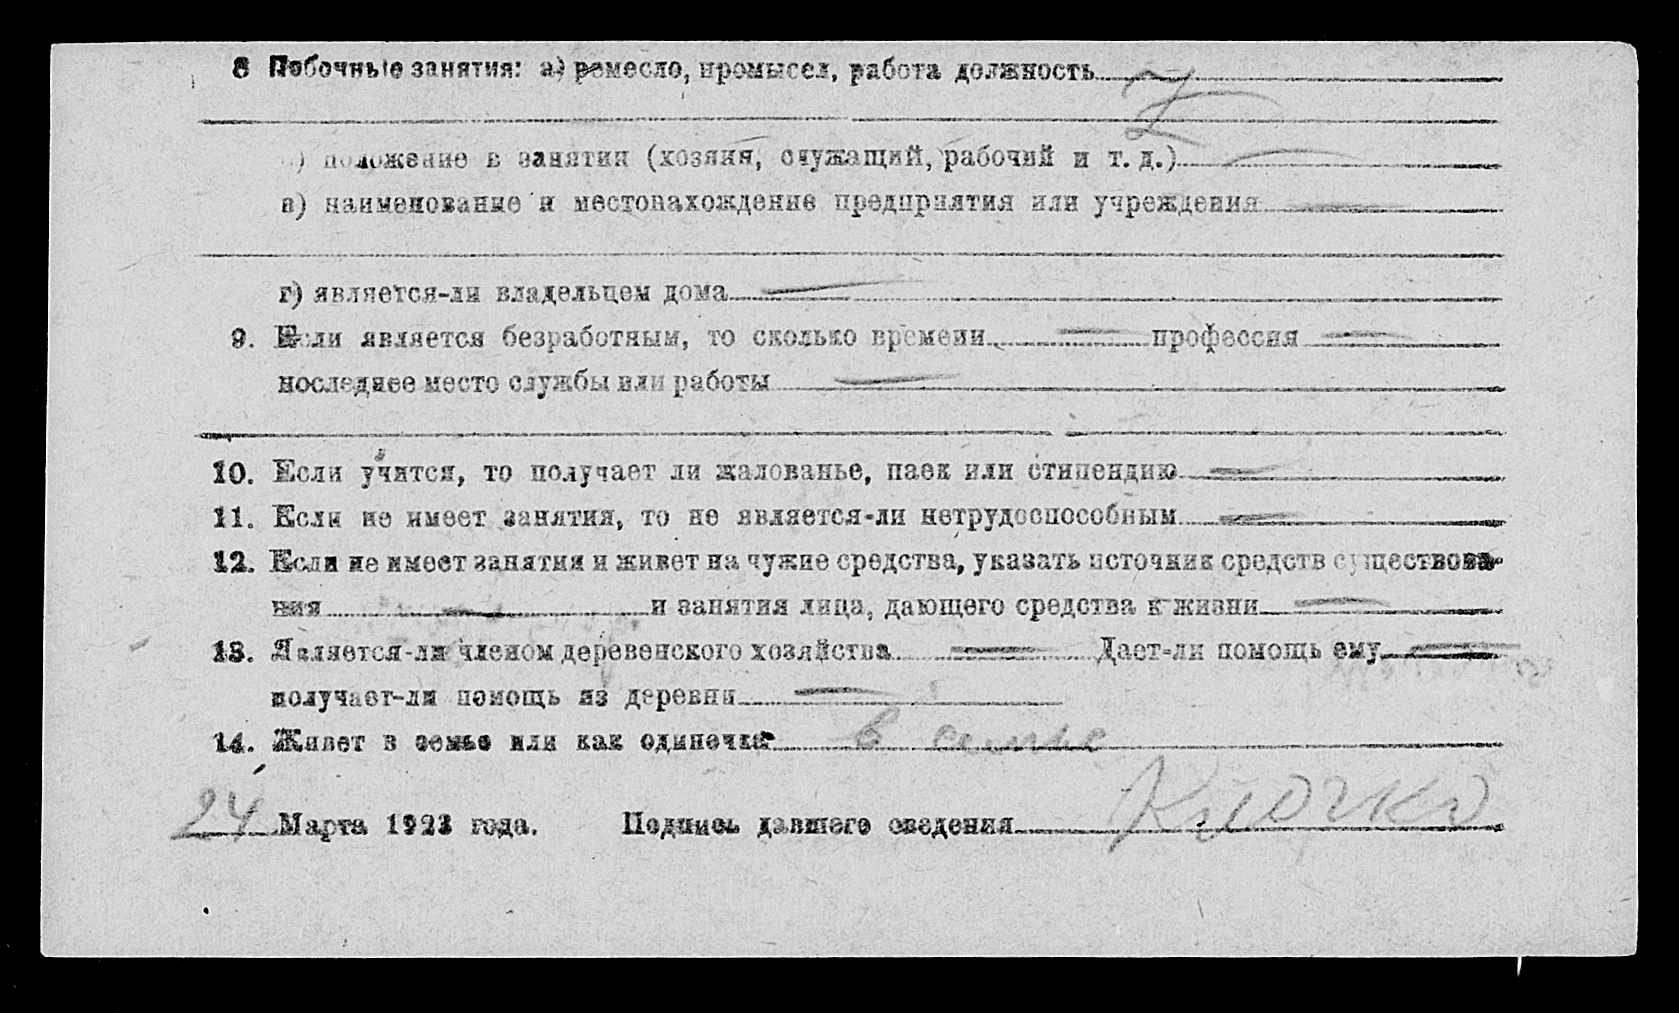 8 Побочные занятия: а) ремесло, промысел, работа должность
б) положение в занятии (хозяин, служащий, рабочий и т. д.) —
в) наименование и местонахождение предприятия или учреждения —
г) является-ли владельцем дома —
9. Если является безработным, то сколько времени — профессия —
последнее место службы или работы —
10. Если учится, то получает ли жалованье, паек или стипендию —
11. Если не имеет занятия, то не является-ли нетрудоспособным —
12. Если не имеет занятия и живет на чужие средства, указать источник средств существова-
ния — и занятия лица, дающего средства к жизни —
13. Является-ли членом деревенского хозяйства — Дает-ли помощь ему —
получает-ли помощь из деревни —
14. Живет в семье или как одиночка в семье
24 Марта 1923 года. Подпись давшего сведения Клочко